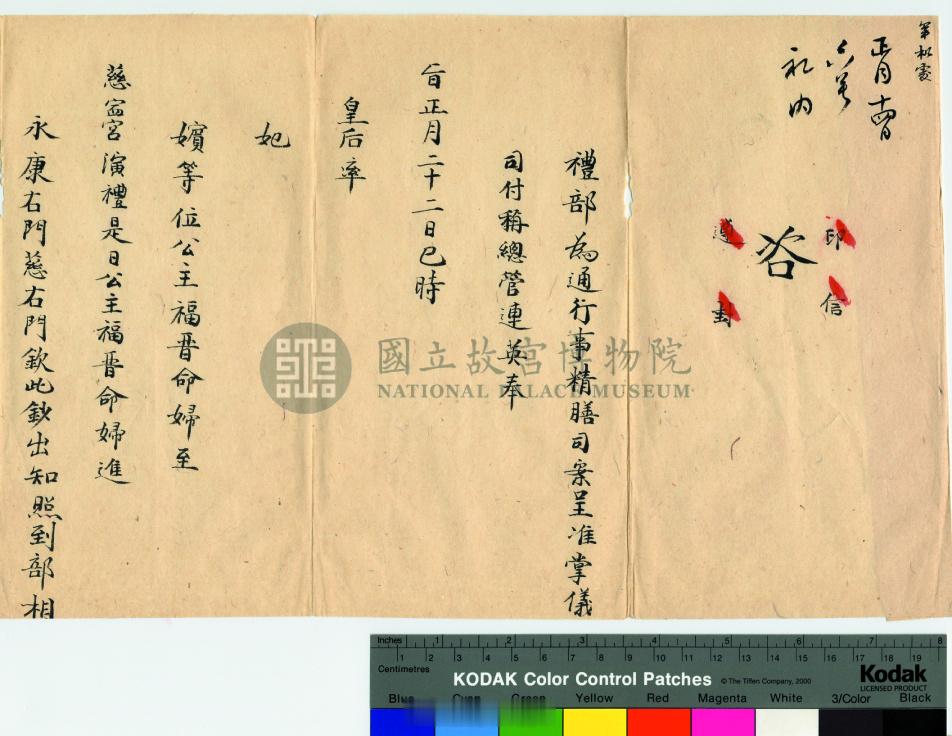 正月十四日
禮內
印信
咨
遵封
禮部為通行事精膳司案呈准掌儀
司付稱總管連英奉
旨正月二十二日巳時
皇后率
妃
嬪等位公主福晋命婦至
慈寧宮演禮是日公主福晋命婦進
永康右門慈右門欽此鈔出知照到部相
國立故宮博物院
NATIONAL PALACE MUSEUM
Inches 1 2 3 4 5 6 7 8
Centimetres 1 2 3 4 5 6 7 8 9 10 11 12 13 14 15 16 17 18 19
KODAK Color Control Patches © The Tiffen Company, 2000
Kodak
LICENSED PRODUCT
Blue Cyan Green Yellow Red Magenta White 3/Color Black